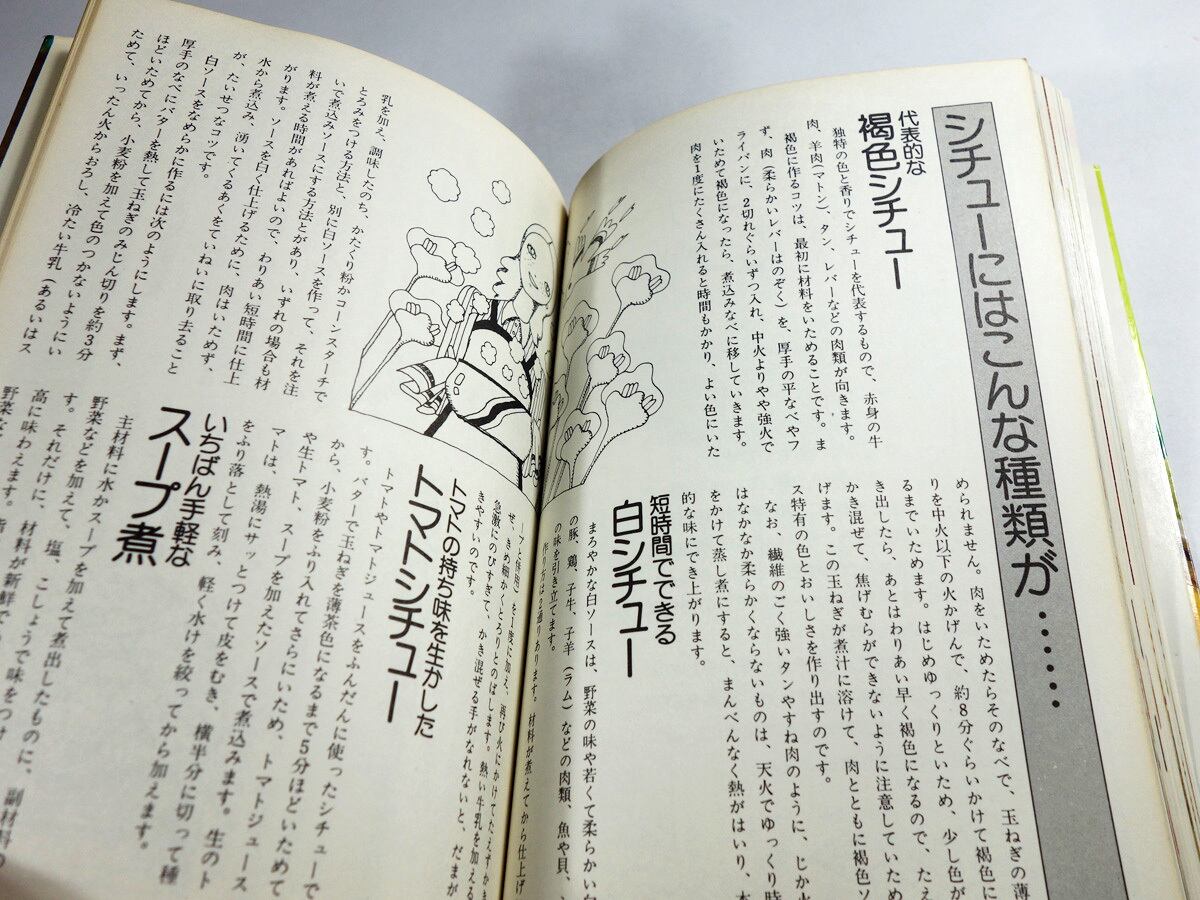 シチューにはこんな種類が……
代表的な
褐色シチュー
独特の色と香りでシチューを代表するもので、赤身の牛
肉、羊肉(マトン)、タン、レバーなどの肉類が向きます。
褐色に作るコツは、最初に材料をいためることです。ま
ず、肉(柔らかいレバーはのぞく)を、厚手の平なべやフ
ライパンに、2切れぐらいずつ入れ、中火よりやや強火で
いためて褐色になったら、煮込みなべに移していきます。
肉を1度にたくさん入れると時間もかかり、よい色にいた
められません。肉をいためたらそのなべで、玉ねぎの薄
りを中火以下の火かげんで、約8分ぐらいかけて褐色に
るまでいためます。はじめゆっくりといため、少し色が
き出したら、あとはわりあい早く褐色になるので、たえ
かき混ぜて、焦げむらができないように注意していため
げます。この玉ねぎが煮汁に溶けて、肉とともに褐色ソ
ス特有の色とおいしさを作り出すのです。
なお、繊維のごく強いタンやすね肉のように、じか火
はなかなか柔らかくならないものは、天火でゆっくり時
をかけて蒸し煮にすると、まんべんなく熱がはいり、本
的な味にでき上がります。
短時間でできる
白シチュー
まろやかな白ソースは、野菜の味や若くて柔らかい肉
の豚、鶏、子牛、子羊(ラム)などの肉類、魚や貝、
の味を引き立てます。
作り方は2通りあります。材料が煮えてから仕上げ
乳を加え、調味したのち、かたくり粉かコーンスターチで
とろみをつける方法と、別に白ソースを作って、それを注
いで煮込みソースにする方法とがあり、いずれの場合も材
料が煮える時間があればよいので、わりあい短時間に仕上
がります。ソースを白く仕上げるために、肉はいためず、
水から煮込み、湧いてくるあくをていねいに取り去ること
が、たいせつなコツです。
白ソースをなめらかに作るには次のようにします。まず、
厚手のなべにバターを熱して玉ねぎのみじん切りを約3分
ほどいためてから、小麦粉を加えて色のつかないようにい
ためて、いったん火からおろし、冷たい牛乳(あるいはス
ープと併用)を1度に加え、再び火にかけてたえずかき
ぜ、きめ細かくとろりとのばします。熱い牛乳を加える
急激にのびすぎて、かき混ぜる手がなれないと、だまが
きやすいのです。
トマトの持ち味を生かした
トマトシチュー
トマトやトマトジュースをふんだんに使ったシチューで
す。バターで玉ねぎを薄茶色になるまで5分ほどいためて
から、小麦粉をふり入れてさらにいため、トマトジュース
や生トマト、スープを加えたソースで煮込みます。生のト
マトは、熱湯にサッとつけて皮をむき、横半分に切って種
をふり落として刻み、軽く水けを絞ってから加えます。
いちばん手軽な
スープ煮
主材料に水かスープを加えて煮出したものに、副材料の
野菜などを加えて、塩、こしょうで味をつけ
す。それだけに、材料が新鮮で
高に味わえます。
野菜な